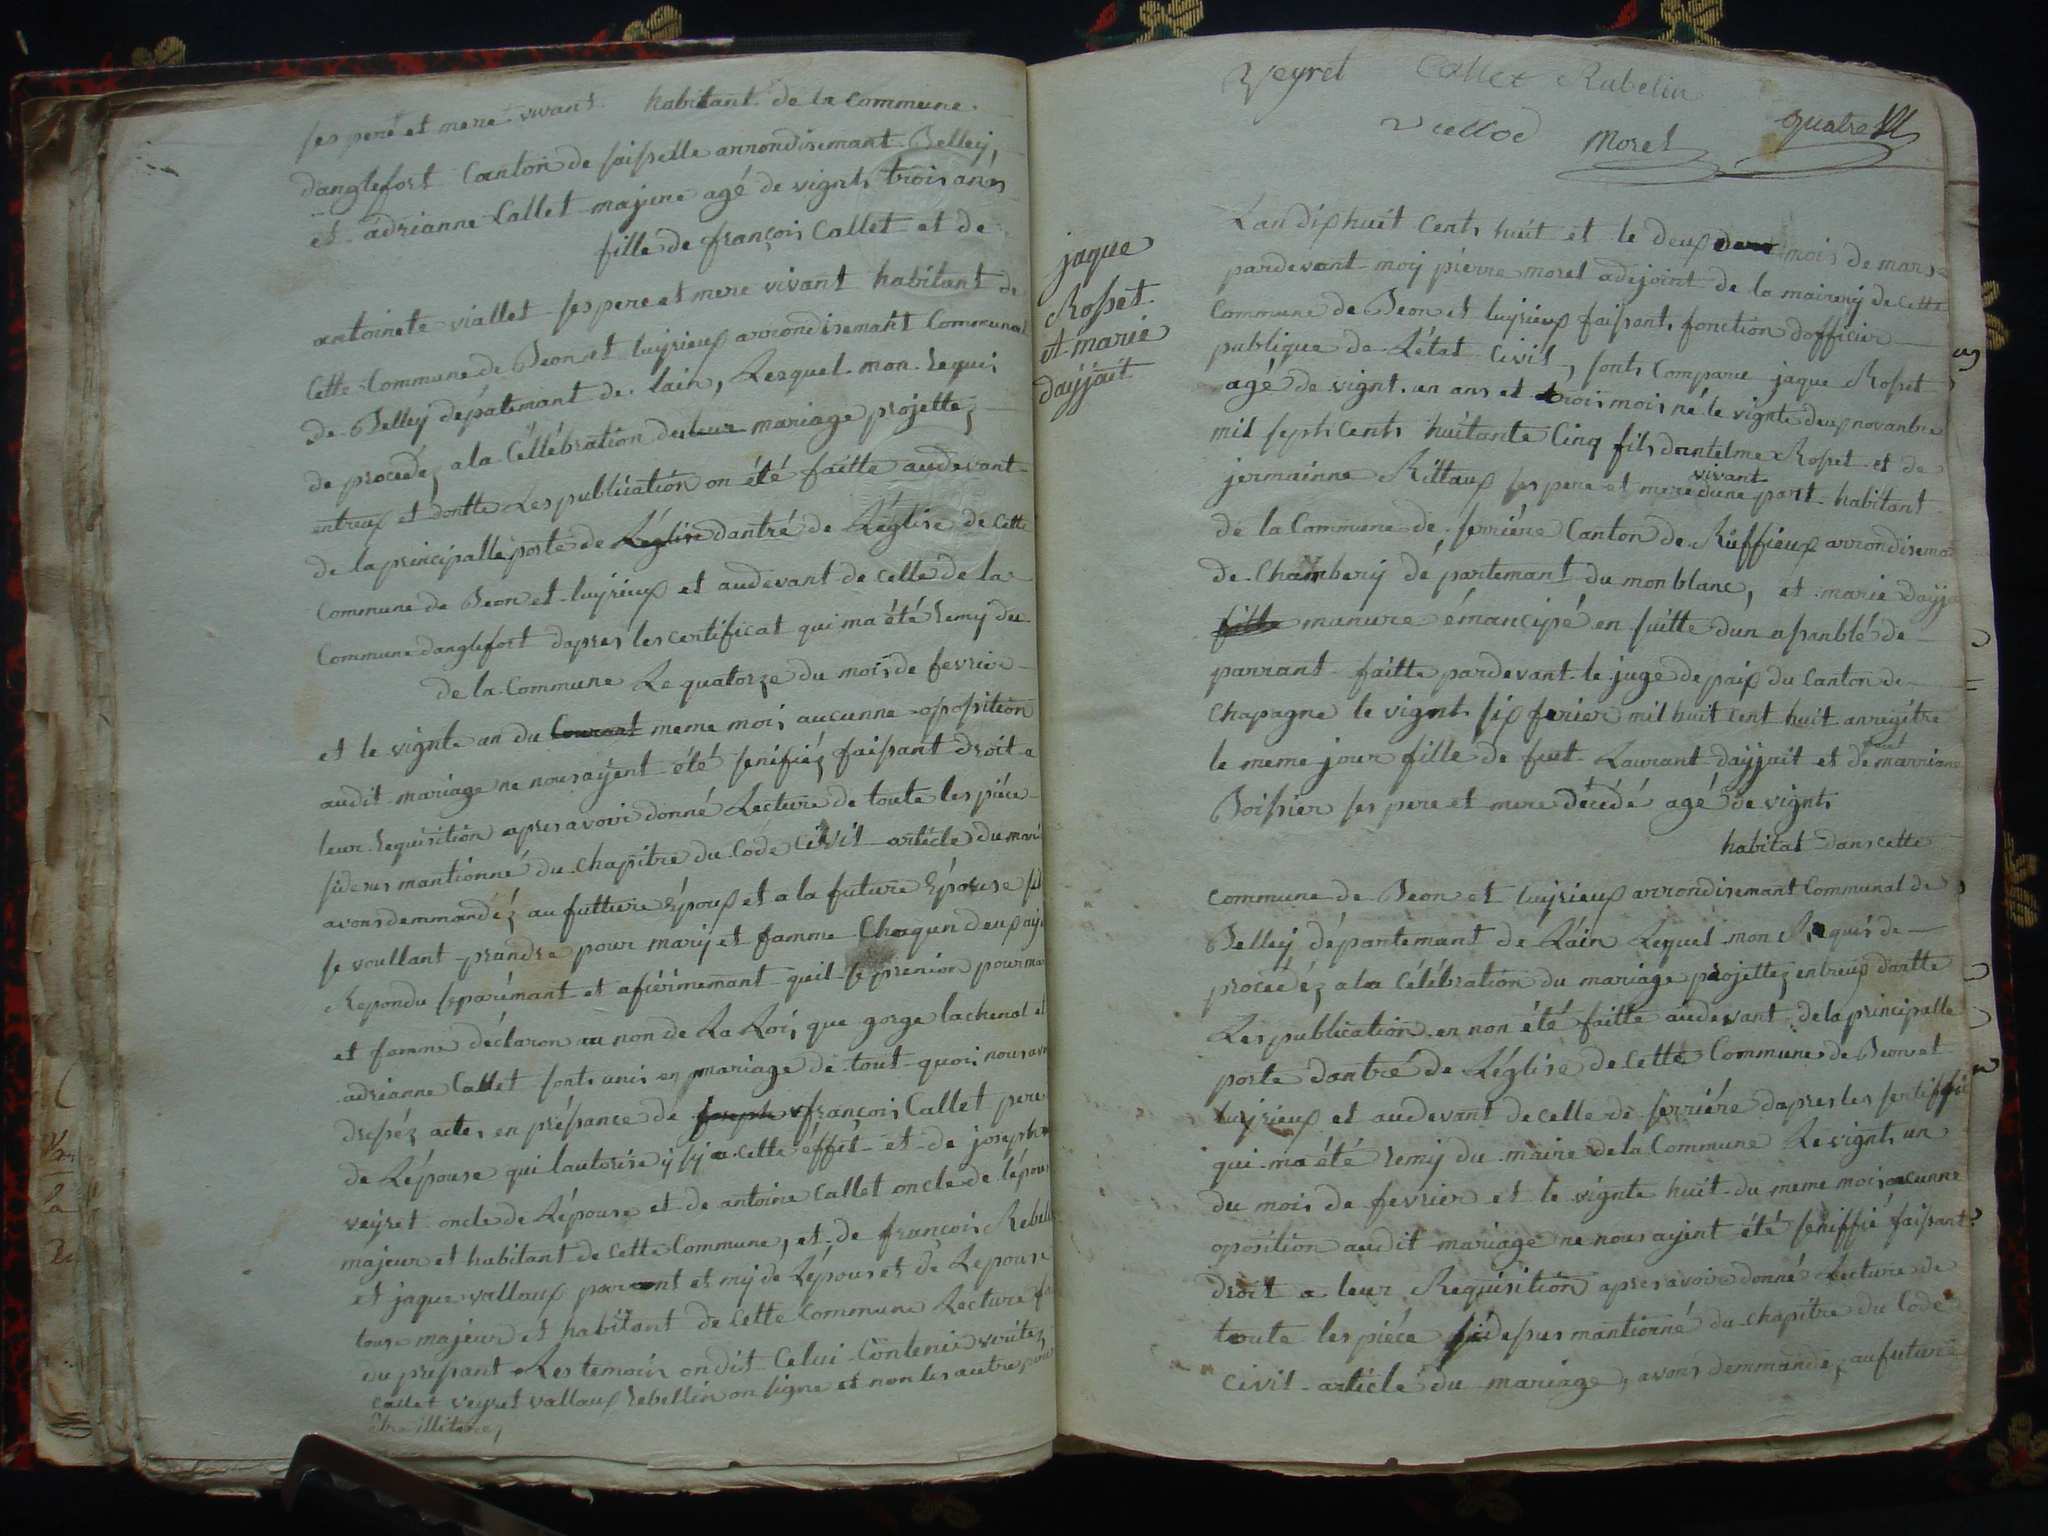 ses pere et mere vivant habitant de la commune
danglefort Canton de saisselle arrondisemant Belley,
et adrianne Callet majure agé de vignts trois ans
fille de françois Callet et de
antoinete viallet ses pere et mere vivant habitant de
Cette Commune de Beon et luyrieux arrondisemant Communal
de Belley dépatemant de lain, Lesquel mon requis
de procedéz a la Céllébration de leur mariage projettéz
entreux et dontte Les publication on été faitte audevant
de la principalle porte de Leglise dantré de Léglise de Cette
Commune de Beon et luyrieux et audevant de celle de la
Commune danglefort dapres les certificat qui ma été remy du
de la Commune Le quatorze du mois de fevrier
et le vignte un du Courant meme mois aucunne oposition
audit mariage ne nous ayent été senifiéz faisant droit a
leur requisition apres avoir donné Lecture de toute les piéce
sidesus mantionné du chapitre du Code Civil article du mari
avons demmandéz au futture Époux et a la future Épouse sil
se voullant prandre pour mary et famme Chaqun deux ayt
Repondu séparémant et afirimemant queil se prenion pour mari
et famme déclaron au non de La Loi, que gorge lachenal et
adrianne Callet sont unis en mariage de tout quoi nous avons
dreséz acte, en présance de joseph françois Callet pere
de Lépouse qui lautorise y sy a cette éffet et de joseph
veyret oncle de Lépouse et de antoine Callet oncle de lépouse
majeur et habitant de cette Commune, et de françois Rebellin
et jaque vallaux parant et my de Lépouset de Lepouse
tous majeur et habitant de Cette Commune Lecture fa
du presant Les temoin on dit Celui Contenir veritéz
Callet veyret vallaux rebellin on signe et non les autre pour
être illiterez
Veyret Callet Rabelin
Viallod Moret quatre
jaque
Rosset
et marie
dayjait
Lan dix huit Cents huit et le deux dans mois de mars
pardevant moy pierre moret adejoint de la mairery de Cette
Commune de Beon et luyrieux faisant fonction dofficier
publique de Létat Civil, sont Comparu jaque Rosset
agé de vignt un ans et trois mois né le vignte deux novanbre
mil septs Cents huitante Cinq fils dantelme Rosset et de
jermainne Rittaux ses pere et mere vivant dune part habitant
de la Commune de serriére Canton de Ruffieux arrondisemo
de Chambery dé partemant du monblanc, et marie dayja
fille manure émancipé en suitte dun asanblé de
parrant faitte pardevant le juge de paix du Canton de
Chapagne le vignt six ferier mil huit Cent huit anregitré
le meme jour fille de fut Laurant dayjait et de fut marriane
Boissier ses pere et mere décédé agé de vignts
habitat dans cette
commune de Beon et luyrieux arrondisemant Communal de
Belley départemant de Láin Lequel mon Requis de
procedéz a la Célébration du mariage projettéz entreux dontte
Les publication en non été faitte audevant de la principalle
porte dantré de Léglise de Cette Commune de Beon et
luyrieux et audevant de celle de serriére dapres les sertiffic
qui ma été remy du maire de la Commune Le vignts un
du mois de fevrier et le vignte huit du meme mois aucunne
oposition audit mariage ne nous ayent été seniffié faisant
droit a leur Requisition apres avoir donné Lecture de
toute les piéce sidesus mantionné du chapitre du Code
Civil article du mariage, avons demmandéz au future